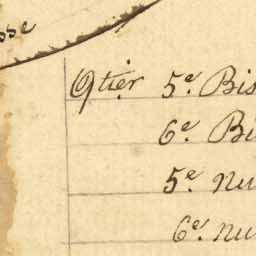 sse
Qtier 5e. Bis
6e. Bi
5e. nu
6e. nu